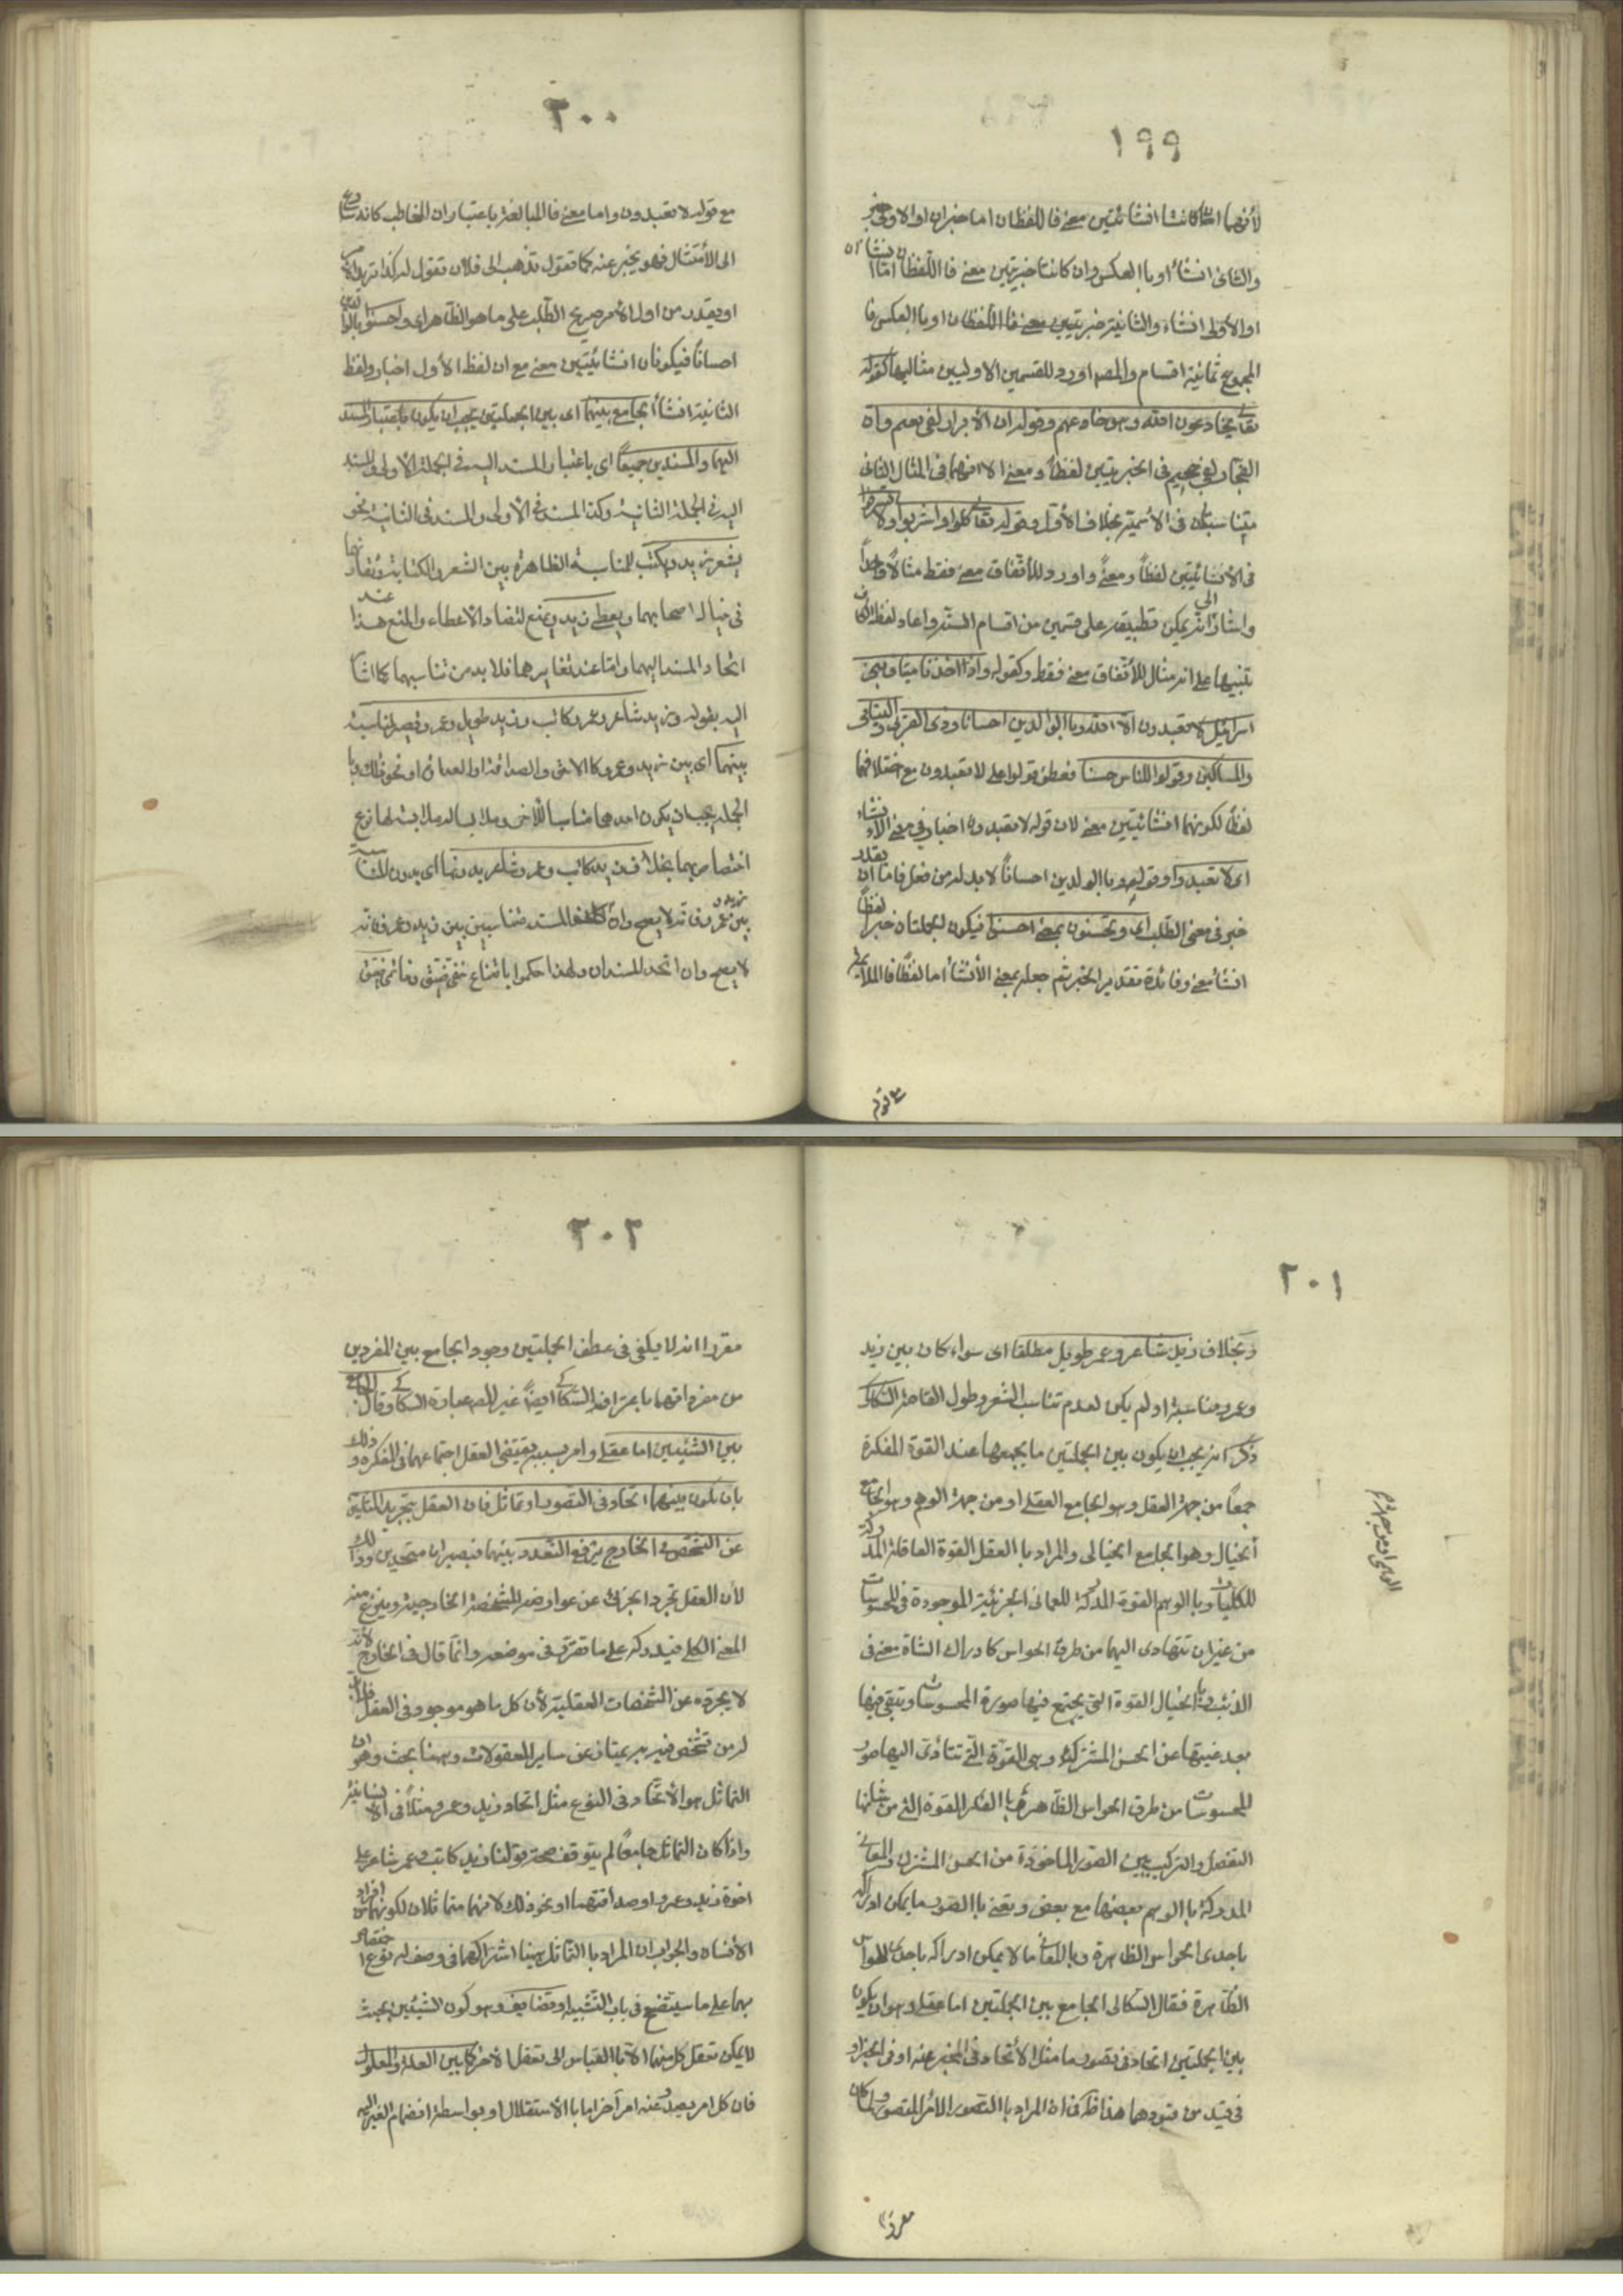 ١٩٩
لأنهما ان كانتا انشائيتين معنى فاللفظان اما خبران او الاولى خبر
والثانى انشاء او بالعكس وان كانتا خبريتين معنى فاللفظان اما انشاان
او الأولى انشاء والثانية خبريتين معنى فاللفظان او بالعكس فا
المجموع ثمانية اقسام والمصه اورد للقسمين الاوليين مثاليهما كقوله
تعالى يخادعون الله وهو خادعهم وقوله ان الأبرار لفى نعيم وان
الفجار لفى جحيم فى الخبريتين لفظاً ومعنى الا انهما فى المثال الثانى
متناسبتان فى الأسمية بخلاف الأول وقوله تعالى كلوا واشربوا ولا تسرفوا
فى الأنشائيتين لفظاً ومعنىً واورد للأتفاق معنى فقط مثالاً واحداً
واشار الى انه يمكن تطبيقه على قسمين من اقسام الستة واعاد لفظ الكاف
تنبيهاً على انه مثال للأتفاق معنى فقط وكقوله واذ اخذنا ميثاق بنى
اسرائيل لا تعبدون الا الله وبالوالدين احسانا وذى القربى واليتامى
والمساكين وقولوا للناس حسنا فعطف قولوا على لا تعبدون مع اختلافهما
لفظاً لكونهما انشائيتين معنى لان قوله لا تعبدون اخبار فى معنى الأنشاء
اى لا تعبدوا وقوله وبالوالدين احساناً لا بد له من فعل فاما ان يقدر
خبر فى معنى الطلب اى وتحسنون بمعنى احسنوا فيكون الجملتان خبراً لفظاً
انشاء معنى وفائدة تقدير الخبر ثم جعله بمعنى الأنشاء اما لفظاً فالملايمة
مع قوله
٢٠٠
مع قوله لا تعبدون واما معنى فالمبالغة باعتبار ان المخاطب كانه سارع
الى الأمتثال فهو يخبر عنه كما تقول تذهب الى فلان تقول له كذا تريد الأمر
او يقدر من اول الأمر صريح الطلب على ما هو الظاهر اى واحسنوا بالوالدين
احساناً فيكونان انشائيتين معنى مع ان لفظ الأول اخبار ولفظ
الثانية انشاء الجامع بينهما اى بين الجملتين يجب ان يكون باعتبار المسند
اليهما والمسندين جميعاً اى باعتبار المسند اليه فى الجملة الأولى والمسند
اليه فى الجملة الثانية وكذا المسند فى الأولى والمسند فى الثانية نحو
يشعر زيد ويكتب للمناسبة الظاهرة بين الشعر والكتابة وتقارنهما
فى خيال اصحابهما ويعطى زيد ويمنع لتضاد الاعطاء والمنع هذا عند
اتحاد المسند اليهما واما عند تغايرهما فلا بد من تناسبهما كما اشار
اليه بقوله وزيد شاعر وعمرو كاتب وزيد طويل وعمرو قصير لمناسبة
بينهما اى بين زيد وعمرو كالاخوة والصداقة او العداوة او نحو ذلك وبا
الجملة يجب ان يكون احدهما مناسباً للأخر وملابساً له ملابسة لها نوع
اختصاص بهما بخلاف زيد كاتب وعمرو شاعر بدونها اى بدون المناسبة
بين زيد وعمرو فانه لا يصح وان المسند متناسبين بين زيد وعمرو فانه
لا يصح وان اتحد المسندان ولهذا حكموا بامتناع خفى ضيق وخاتمى ضيق
٢٠١
وبخلاف زيد شاعر وعمر طويل مطلقا اى سواء كان بين زيد
وعمرو مناسبة او لم يكن لعدم تناسب الشعر وطول القامة السكاكى
ذكر انه يجب ان يكون بين الجملتين ما يجمعهما عند القوة المفكرة
جمعاً من جهة العقل وهو الجامع العقلى او من جهة الوهم وهو الجامع
الوهمى او من جهة
الخيال وهو الجامع الخيالى والمراد بالعقل القوة العاقلة المدركة
للكليات وبالوهم القوة المدركة للمعانى الجزئية الموجودة فى المحسوسات
من غير ان تتهادى اليها من طرق الحواس كادراك الشاة معنى فى
الذئب وبالخيال القوة التى يجتمع فيها صورة المحسوسات وتبقى فيها
بعد غيبتها عن الحس المشترك وهى القوة التى تتادى اليها صور
المحسوسات من طرق الحواس الظاهرة وبالفكر القوة التى من شانها
التفصيل والتركيب بين الصور الماخوذة من الحس المشترك والمعانى
المدركة بالوهم بعضها مع بعض ونعنى بالصور ما يمكن ادراكه
باحدى الحواس الظاهرة وبالمعانى ما لا يمكن ادراكه باحدى الحواس
الظاهرة فقال السكاكى الجامع بين الجملتين اما عقلى وهو ان يكون
بين الجملتين اتحاد فى تصور ما مثل الأتحاد فى المخبر عنه او فى الخبر او
فى قيد من قيودهما هذا ظاهر فى ان المراد بالتصور الأمر المتصور ولما كان
مقررا
٢٠٢
مقررا انه لا يكفى فى عطف الجملتين وجود الجامع بين المفردين
من مفرداتهما باعتراف السكاكى ايضاً غير المصه عبارة السكاكى وقال الجامع
بين الشيئين اما عقلى وامر بسببه يقتضى العقل اجتماعهما فى الفكرة وذلك
بان يكون بينهما اتحاد فى التصور او تماثل فان العقل بتجريد المثلين
عن التشخص فى الخارج يرفع التعدد بينهما فيصيران متحدين وذلك
لأن العقل تجرد الجزئى عن عوارضه المشخصة الخارجية وينزع منه
المعنى الكلى فيدركه على ما تقرر فى موضعه وانما قال فى الخارج لأنه
لا يجرده عن الشخصات العقلية لأن كل ما هو موجود فى العقل فلا بد
له من تشخص فيه به يمتاز عن سائر المعقولات وههنا بحث وهو ان
التماثل هو الأتحاد فى النوع مثل اتحاد زيد وعمرو مثلاً فى الأنسانية
واذا كان التماثل جامعاً لم يتوقف صحة قولنا زيد كاتب وعمر شاعر على
اخوة زيد وعمرو او صداقتهما او نحو ذلك لانهما متماثلان لكونهما من افراد
الأنسان والجواب ان المراد بالتماثل ههنا اشتراكهما فى وصف له نوع اختصاص
بهما على ما سيتضح فى باب التشبيه او تضايف وهو كون الشيئين بحيث
لا يمكن تعقل كل منهما الا بالقياس الى تعقل الأخر كما بين العلة والمعلول
فان كل امر يصدر عنه امر آخر اما بالأستقلال او بواسطة انضمام الغير اليه